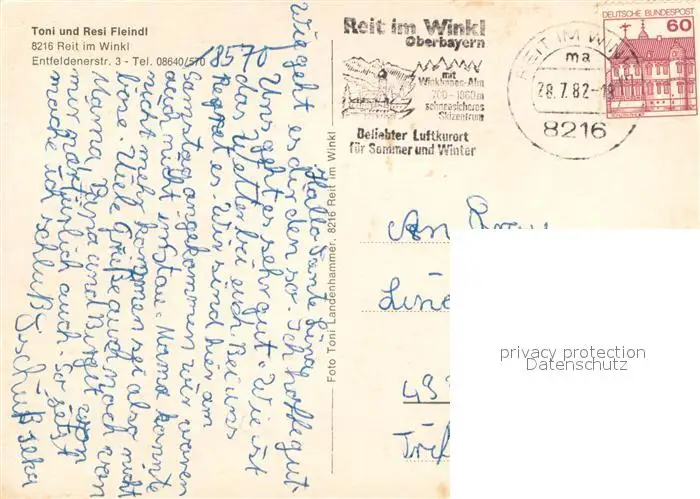 Toni und Resi Fleindl
8216 Reit im Winkl
Entfeldenerstr. 3 - Tel. 08640/570
18570
Hallo Tante Lina
Wie geht es dir denn so. Ich hoffe gut
Uns geht es sehr gut. Wie ist
das Wetter bei euch. Bei uns
Regnet es. Wir sind hier am
Samstag angekommen wir waren
auch nicht im Stau. Mama kannte
nicht mehr kommen sei also nicht
böse. Viele Grüße auch noch von
Mama, und Birgit von
mir natürlich auch. So jetzt
mache ich schluß Tschüß
Foto Toni Landenhammer, 8216 Reit im Winkl
Reit im Winkl
Oberbayern
mit
Winklmoos-Alm
700-1860m
schneesicheres
Skizentrum
Beliebter Luftkurort
für Sommer und Winter
REIT IM WINKL
ma
28.7.82-18
8216
DEUTSCHE BUNDESPOST
60
An Frau
Line
493
privacy protection
Datenschutz